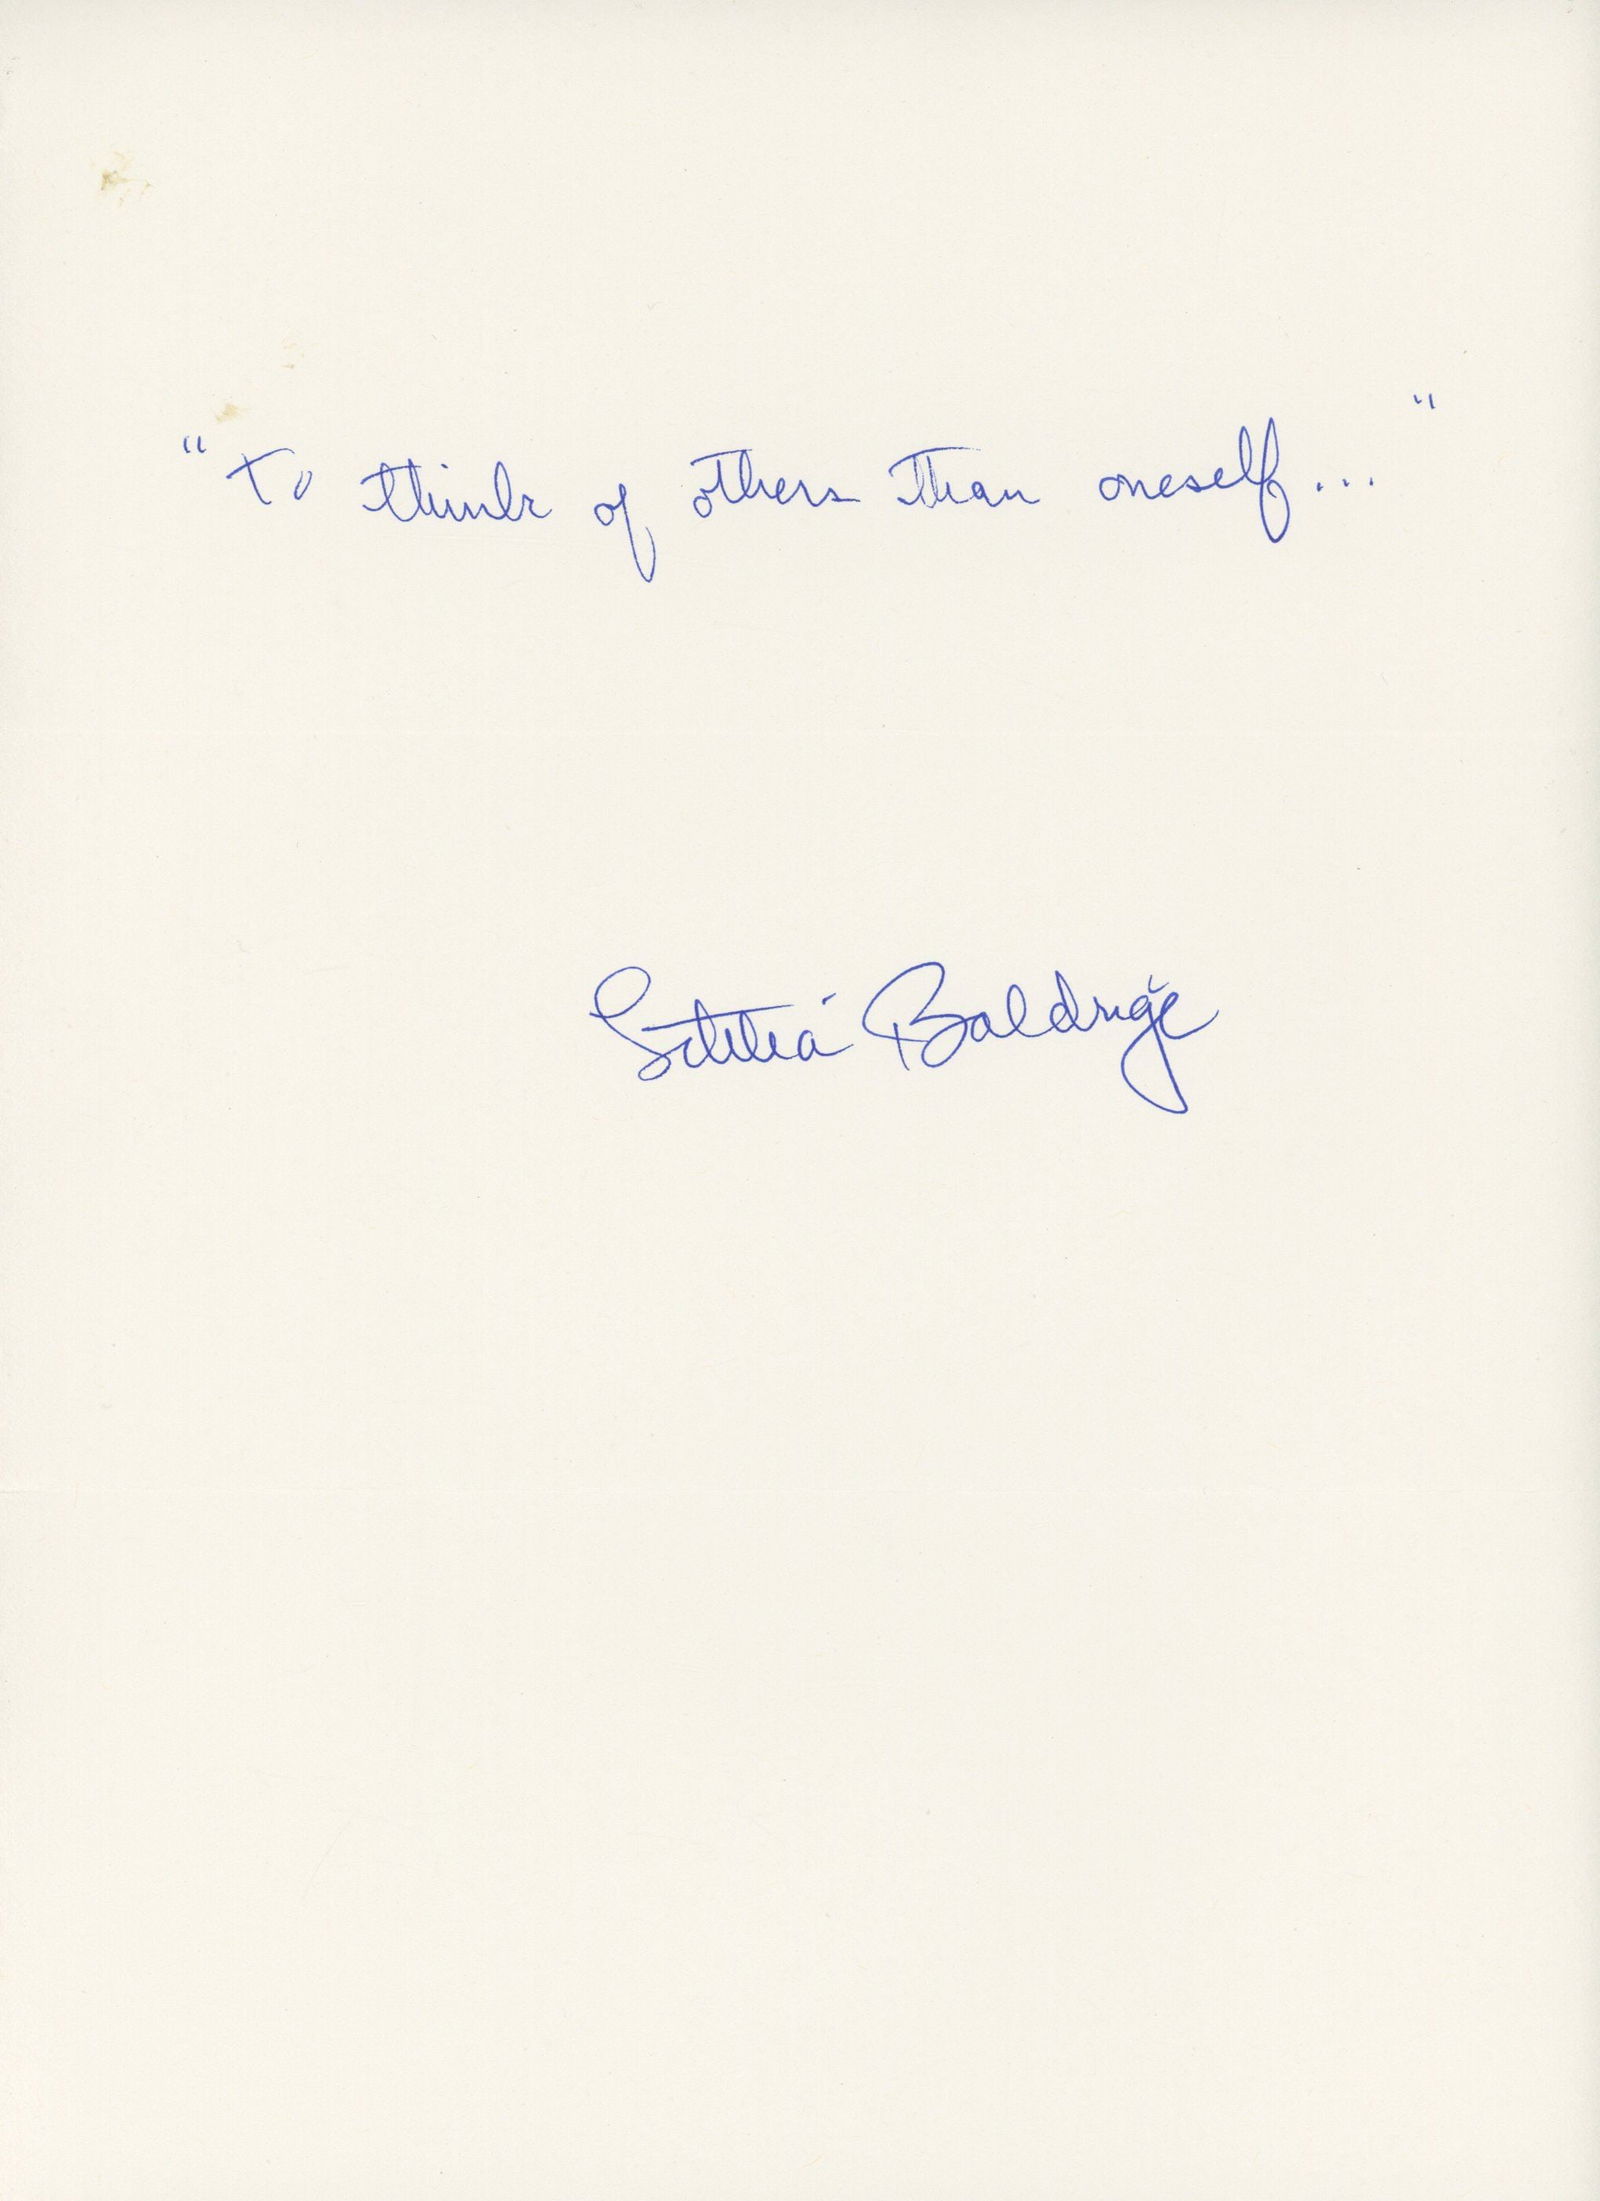 "To think of others than oneself..."
Letitia Baldrige